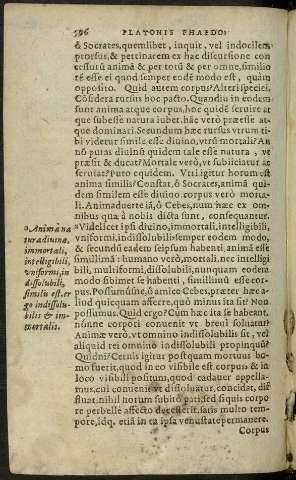 596 PLATONIS PHAEDO:
ô Socrates, quemlibet, inquit, vel indocilem
prorsus, & pertinacem ex hac discursione con
cessurũ animã & per totũ & per omne, similio
rẽ esse ei quod semper eodẽ modo est, quàm
opposito. Quid autem corpus? Alteri speciei.
Cõsidera rursus hoc pacto. Quandiu in eodem
sunt anima atque corpus, hoc quidẽ seruire at
que subesse natura iubet: hãc verò præesse at
que dominari. Secundum hæc rursus vtrum ti
bi videtur simile esse diuino, vtrũ mortali? An
nõ putas diuinũ quidem tale esse natura, vt
præsit & ducat? Mortale verò, vt subijciatur ac
seruiat? Puto equidem. Vtri igitur horum est
anima similis? Constat, ô Socrates, animã qui-
dem similem esse diuino: corpus verò morta
li. Animaduerte iã, ô Cebes, nũm hæc ex om-
nibus quæ à nobis dicta sunt, consequantur.
a Videlicet ipsi diuino, immortali, intelligibili,
vniformi, indissolubili, semper eodem modo,
& secundũ eadem seipsum habenti, animã esse
simillimã: humano verò, mortali, nec intelligi
bili, multiformi, dissolubili, nunquam eodem
modo sibimet se habenti, simillimũ esse cor-
pus. Possumúsne, ô amice Cebes, præter hæc a-
liud quicquam afferre, quò minus ita sit? Non
possumus. Quid ergo? Cum hæc ita se habeant,
nónne corpori conuenit vt breui soluatur?
Animæ verò, vt omnino indissolubilis sit, vel
aliquid rei omnino indissolubili propinquũ?
Quidni? Cernis igitur postquam mortuus ho-
mo fuerit, quod in eo visibile est corpus & in
loco visibili positum, quod cadauer appella-
mus, cui conuenit vt dissoluatur, concidat, dif
fluat, nihil horum subitò pati, sed siquis corpo
re perbelle affecto decesserit, satis multo tem-
pore, idq. etiã in ea ipsa venustate permanere.
Corpus
a Anima na
tura diuina,
immortali,
intelligibili,
vniformi, in
dissolubili,
similis est, er
go indissolu-
bilis & im-
mortalis.